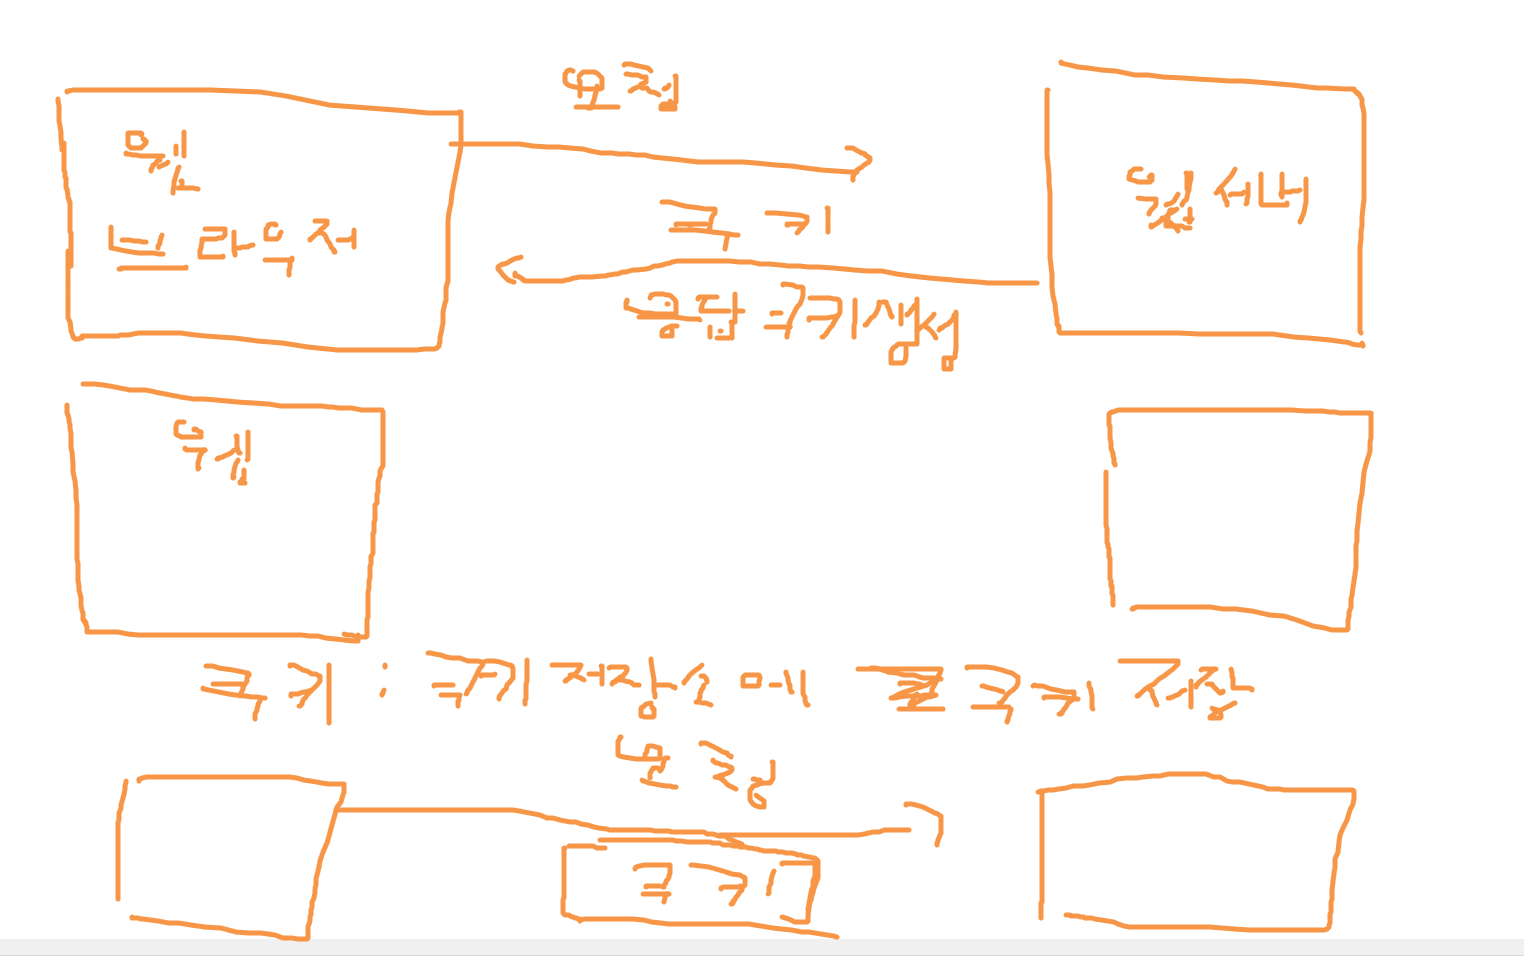 요청
웹
브라우저
웹 서버
쿠키
응답 쿠키생성
쿠키 : 쿠키 저장소에 쿠키 저장
요청
쿠키